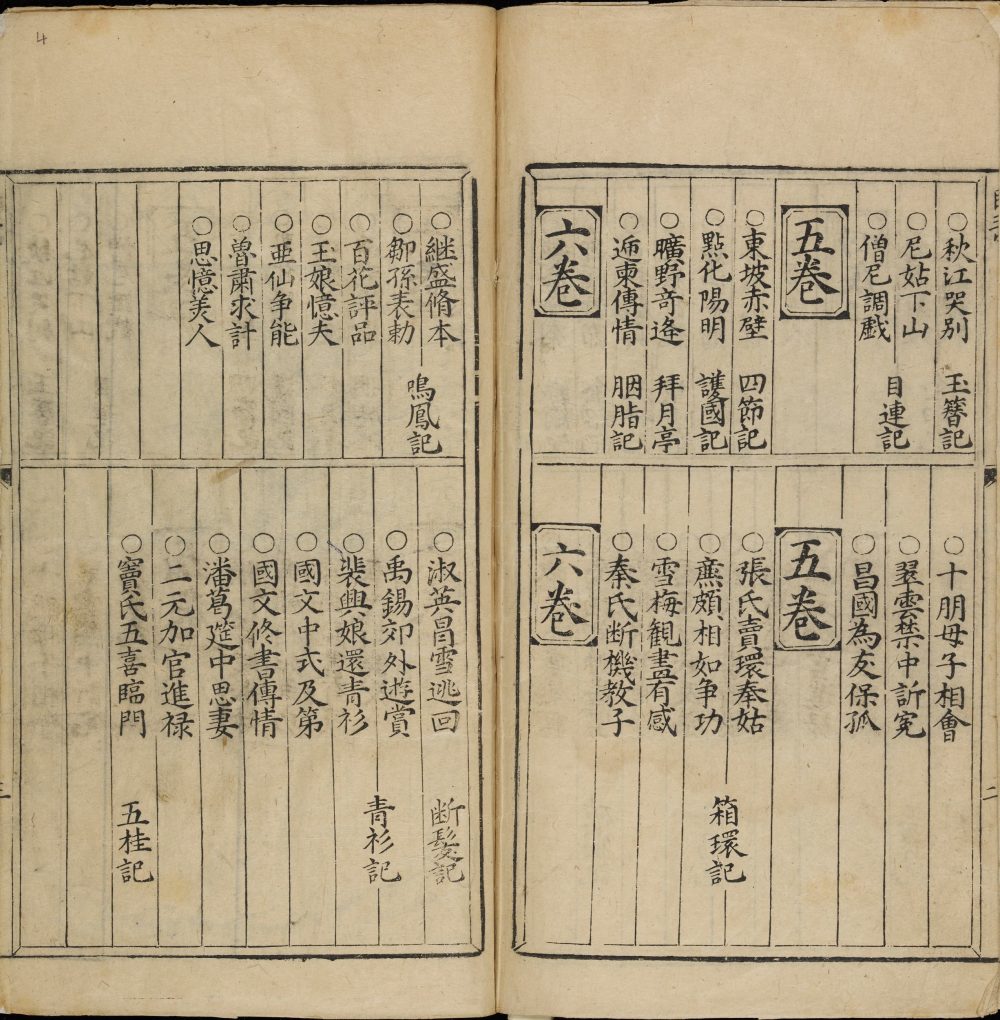 ○秋江哭别 玉簪記
○尼姑下山
○僧尼調戲 目連記
五巻
○東坡赤壁 四節記
○點化陽明 護國記
○曠野竒逢 拜月亭
○逓柬傳情 胭脂記
六巻
○十朋母子相會
○翠雲禁中訴寃
○昌國為友保孤
五巻
○張氏賣環奉姑
○廉頗相如争功 箱環記
○雪梅観畫有感
○秦氏断機教子
六巻
二
○継盛脩本
○鄒孫表勅 鳴鳳記
○百花評品
○玉娘憶夫
○亜仙争能
○魯肅求計
○思憶美人
○淑英昌雪逃回 断髪記
○禹錫郊外遊賞
○裴興娘還青衫 青衫記
○國文中式及第
○國文修書傳情
○潘葛筵中思妻
○二元加官進禄
○竇氏五喜臨門 五桂記
三
4